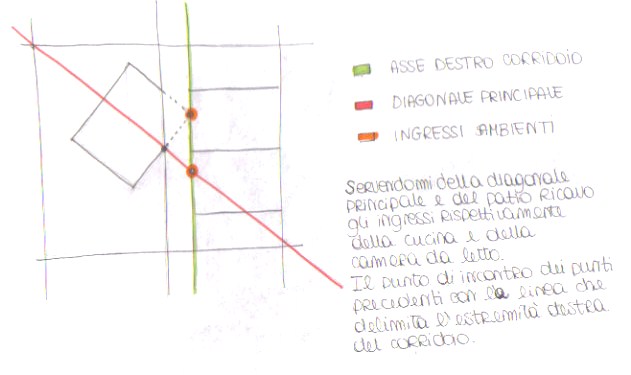 ASSE DESTRO CORRIDOIO
DIAGONALE PRINCIPALE
INGRESSI AMBIENTI
Servendomi della diagonale
principale e del patio ricavo
gli ingressi rispettivamente
della cucina e della
camera da letto.
Il punto di incontro dei punti
precedenti con la linea che
delimita l'estremità destra
del corridoio.